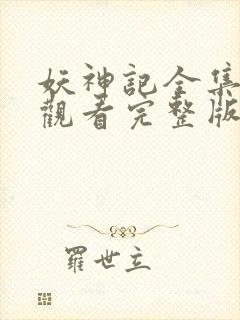 妖神記全集
觀看完整版
羅世立